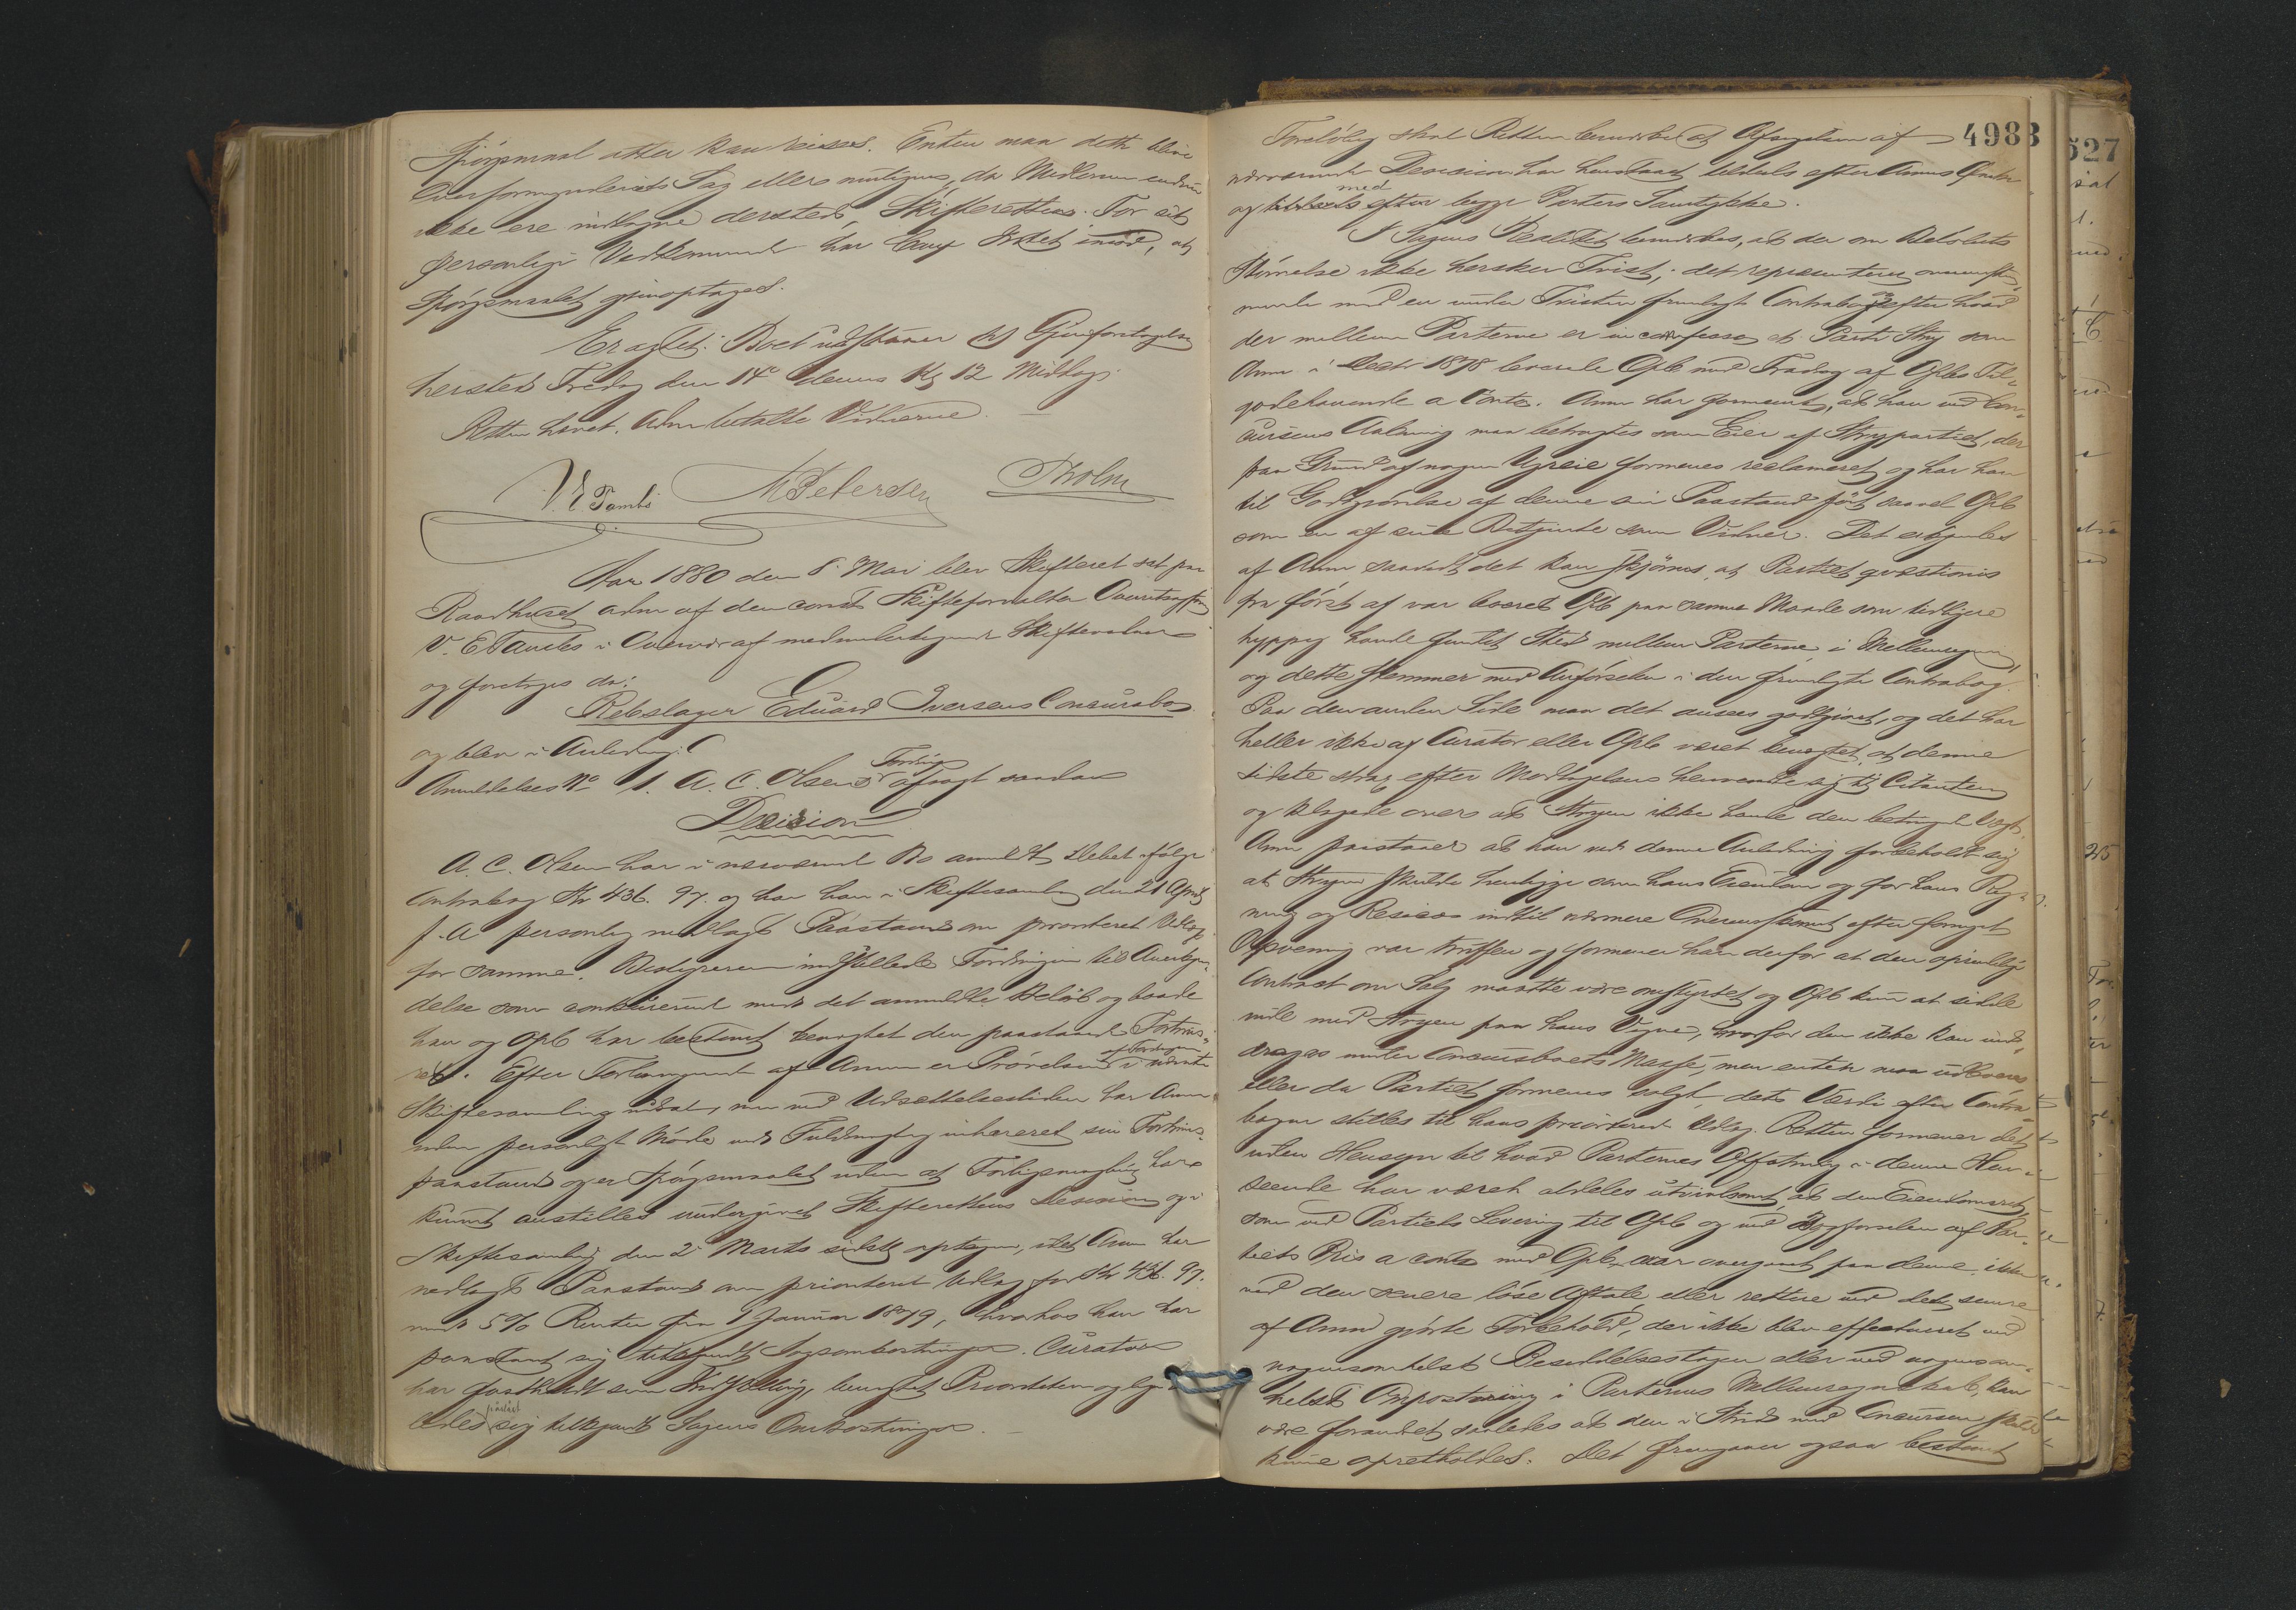 Spörgsmaal atter kan reises. Enten maa dette blive
Overformynderiets Sag eller muligens, da Midlerne endnu
ikke ere indkomne dersteds, Skifterettens. For sit
personlige Vedkommende har han Intet imod, at
Spörgsmaalet gjenoptages.
Eragtet: Boet udstaaer til Gjenforetagelse
hersteds Fredag den 14de dennes Kl 12 Middag.
Retten hævet. Adm betalte Vidnerne.
V. E. Tambs M Petersen Tholm
Aar 1880 den 8. Mai blev Skifteret sat paa
Raadhuset adm af den const Skifteforvalter
V. E Tambs i Overvær af medundertegnede Skiftevidner
og foretoges da:
Rebslager Eduard Iversens Concursbo
og blev i Anledning
Anmeldelses No 1. A. C. Olsens Fordring afsagt saadan
Decision
A. C. Olsen har i nærværende Bo anmeldt Debet ifölge
Contrabog Kr 436. 97. og har han i Skiftesamling den 21 April
f. A personlig nedlagt Paastand om prioriteret Udlæg
for samme. Bestyreren indstillede Fordringen til Anerkjen-
delse som concurrerende med det anmeldte Belöb og baade
han og Opb har bestemt benegtet den paastaaede Fortrins-
ret. Efter Forlangende af Anm er Prövelsen af Fordringen i nævnte
Skiftesamling udsat, men ved Udsættelsestiden har Anm
uden personligt Möde ved Fuldmægtig inhæreret sin Fortrins-
paastand og er Spörgsmaalet uden at Forligsmægling har
kunnet anstilles undergivet Skifterettens Decision og i
Skiftesamling den 2 Marts sidst optagen, idet Anm har
nedlagt Paastand om prioriteret Udlæg for Kr 436. 97.
med 5% Renter fra 1 Januar 1879, hvorhos han har
paastaaet sig tilkjendt Sagsomkostninger. Curator
har fastholdt sin Indstilling, benegtet Prioriteten og lige-
ledes paastaaet sig tilkjendt Sagens Omkostninger.
4983
527
Foreløbig skal Retten bemærke at Afsigelsen af
nærværende Decision har henstaaet tildels efter Anms Önske
og tildels med efter begge Parters Samtykke.
I Sagens Realitet bemærkes, at der om Belöbets
Störrelse ikke hersker Tvist; det repræsenterer overensstem-
mende med en under Tvisten fremlagt Contrabog og efter hvad
der mellem Parterne er in confesso et Parti Stry som
Anm i Dectr 1878 leverede Opb med Fradrag af Opbs Til-
godehavende a Conto. Anm har formenet, at han ved Con-
cursens Aabning maa betragtes som Eier af Strypartiet, der
paa Grund af nogen Ureie formenes reclameret og har han
til Godtgjörelse af denne sin Paastand fört saavel Opb
som en af sine Betjente som Vidner. Det erkjendes
af Anm saavidt det kan skjönnes, at Partiet qvæstionis
fra först af var leveret Opb paa samme Maade som tidligere
hyppig havde fundet Sted mellem Parterne i Mellemregning
og dette stemmer med Anförselen i den fremlagte Contrabog.
Paa den anden Side maa det ansees godtgjort, og det har
heller ikke af Curator eller Opb været benegtet, at denne
sidste strax efter Modtagelsen henvendte sig til Citanten
og klagede over at Stryen ikke havde den betingede Vægt.
Anm paastaaer at han ved denne Anledning forbeholdt sig
at Stryen skulde henligge som hans Eiendom og for hans Reg-
ning og Resico indtil nærmere Overenskomst efter fornyet
Opveining var truffen og formener han derfor at den oprindelige
Contract om Salg maatte være omstyrtet og Opb kun at sidde
inde med Stryen paa hans Vegne, hvorfor den ikke kan ind-
drages under Concursboets Masse, men enten maa udleveres
eller da Partiet formenes solgt, dets Værdi efter Contra-
bogen stilles til hans prioriterede Udlæg. Retten formener det
uden Hensyn til hvad Parternes Opfatning i denne Hen-
seende har været aldeles utvivlsomt, at den Eiendomsret,
som ved Partiets Levering til Opb og ved Bogförselen af Par-
tiets Pris a conto med Opb var overgaaet paa denne, ikke
ved den senere löse Aftale, eller rettere ved det senere
af Anm gjorte Forbehold, der ikke blev effectueret ved
nogensomhelst Besiddelsestagen eller ved nogensom-
helst Ompostering i Parternes Mellemregnskab, kan
være forandret saaledes at den i Strid med Concursen skulde
kunne opretholdes. Det fremgaaer ogsaa bestemt